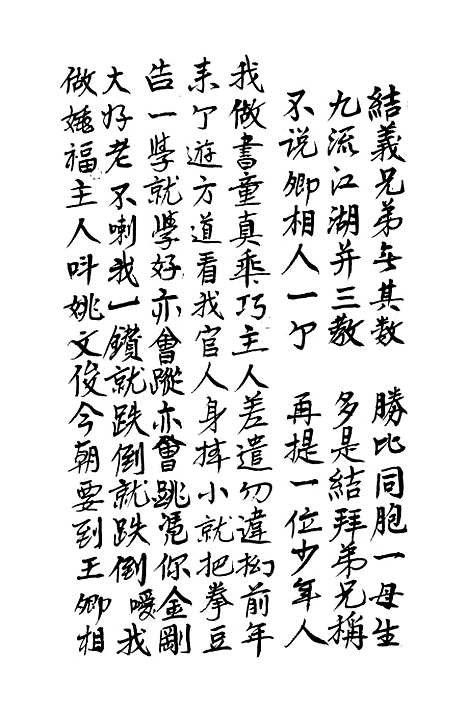 結義兄弟無其数 勝比同胞一母生
九流江湖并三教 多是結拜弟兄稱
不说卿相人一个 再提一位少年人
我做書童真乖巧主人差遣勿違拗前年
来个遊方道看我官人身摔小就把拳豆
告一學就學好亦會蹤亦會跳凴你金剛
大好老不喇我一鑚就跌倒就跌倒 嗳我
做 福主人呌姚文俊今朝要到王卿相